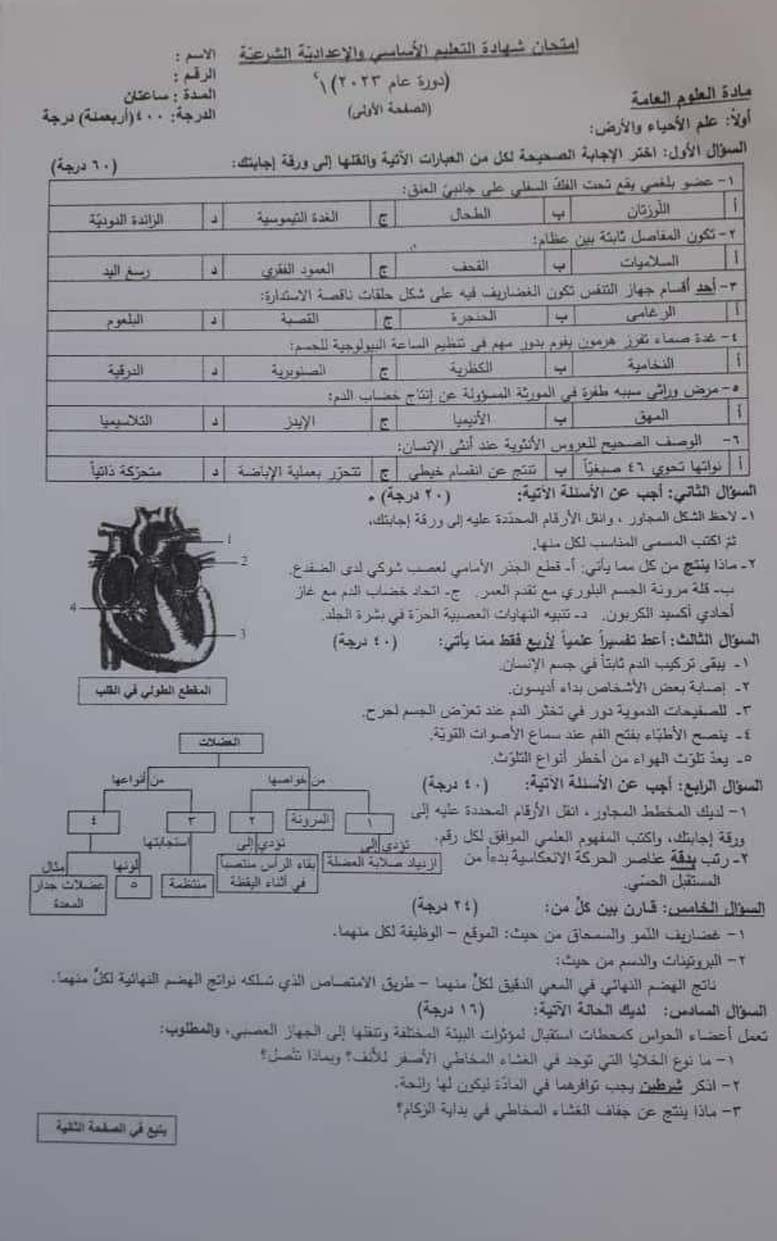 امتحان شهادة التعليم الأساسي والإعدادية الشرعية
(دورة عام ٢٠٢٣)
(الصفحة الأولى)
الاسم :
الرقم :
المدة : ساعتان
الدرجة: ٤٠٠ (أربعمئة) درجة
مادة العلوم العامة
أولاً: علم الأحياء والأرض:
السؤال الأول: اختر الإجابة الصحيحة لكل من العبارات الآتية وانقلها إلى ورقة إجابتك: (٦٠ درجة)
١- عضو بلغمي يقع تحت الفك السفلي على جانبي العنق:
أ اللوزتان ب الطحال ج الغدة التيموسية د الزائدة الدودية
٢- تكون المفاصل ثابتة بين عظام:
أ السلاميات ب القحف ج العمود الفقري د رسغ اليد
٣- أحد أقسام جهاز التنفس تكون الغضاريف فيه على شكل حلقات ناقصة الاستدارة:
أ الرغامى ب الحنجرة ج القصبة د البلعوم
٤- غدة صماء تفرز هرمون يقوم بدور مهم في تنظيم الساعة البيولوجية للجسم:
أ النخامية ب الكظرية ج الصنوبرية د الدرقية
٥- مرض وراثي سببه طفرة في المورثة المسؤولة عن إنتاج خضاب الدم:
أ المهق ب الأنيميا ج الإيدز د التلاسيميا
٦- الوصف الصحيح للعروس الأنثوية عند أنثى الإنسان:
أ نواتها تحوي ٤٦ صبغياً ب تنتج عن انقسام خيطي ج تتحرر بعملية الإباضة د متحركة ذاتياً
السؤال الثاني: أجب عن الأسئلة الآتية: (٢٠ درجة)
١- لاحظ الشكل المجاور ، وانقل الأرقام المحددة عليه إلى ورقة إجابتك،
ثم اكتب المسمى المناسب لكل منها.
٢- ماذا ينتج من كل مما يأتي: أ- قطع الجذر الأمامي لعصب شوكي لدى الضفدع.
ب- قلة مرونة الجسم البلوري مع تقدم العمر. ج- اتحاد خضاب الدم مع غاز
أحادي أكسيد الكربون. د- تنبيه النهايات العصبية الحرّة في بشرة الجلد.
1
2
3
4
المقطع الطولي في القلب
السؤال الثالث: أعط تفسيراً علمياً لأربع فقط مما يأتي: (٤٠ درجة)
١- يبقى تركيب الدم ثابتاً في جسم الإنسان.
٢- إصابة بعض الأشخاص بداء أديسون.
٣- للصفيحات الدموية دور في تخثر الدم عند تعرّض الجسم لجرح.
٤- ينصح الأطباء بفتح الفم عند سماع الأصوات القوية.
٥- يعدّ تلوّث الهواء من أخطر أنواع التلوّث.
السؤال الرابع: أجب عن الأسئلة الآتية: (٤٠ درجة)
١- لديك المخطط المجاور ، انقل الأرقام المحددة عليه إلى
ورقة إجابتك، واكتب المفهوم العلمي الموافق لكل رقم.
٢- رتب بدقة عناصر الحركة الانعكاسية بدءاً من
المستقبل الحسّي.
العضلات
من خواصها
من أنواعها
١
المرونة
٢
٣
٤
تؤدي إلى
تؤدي إلى
استجابتها
لونها
مثال
ازدياد صلابة العضلة
بقاء الرأس منتصباً
في أثناء اليقظة
منتظمة
٥
عضلات جدار
المعدة
السؤال الخامس: قارن بين كلّ من: (٢٤ درجة)
١- غضاريف النّمو والسمحاق من حيث: الموقع – الوظيفة لكل منهما.
٢- البروتينات والدسم من حيث:
ناتج الهضم النهائي في المعي الدقيق لكلّ منهما – طريق الامتصاص الذي تسلكه نواتج الهضم النهائية لكلّ منهما.
السؤال السادس: لديك الحالة الآتية: (١٦ درجة)
تعمل أعضاء الحواس كمحطات استقبال لمؤثرات البيئة المختلفة وتنقلها إلى الجهاز العصبي، والمطلوب:
١- ما نوع الخلايا التي توجد في الغشاء المخاطي الأصفر للأنف؟ وبماذا تتصل؟
٢- اذكر شرطين يجب توافرهما في المادّة ليكون لها رائحة.
٣- ماذا ينتج عن جفاف الغشاء المخاطي في بداية الزكام؟
يتبع في الصفحة الثانية